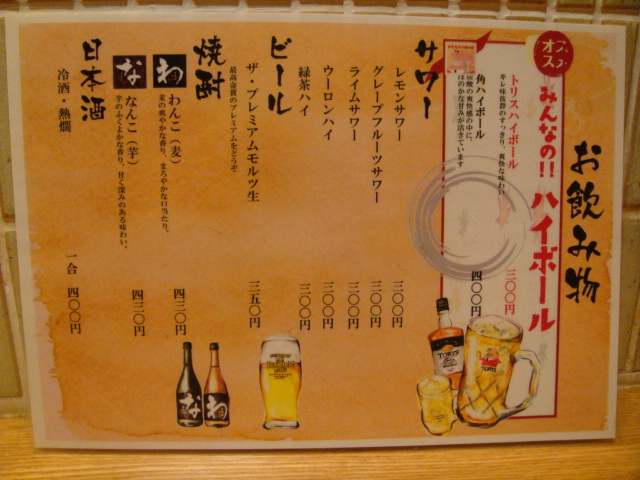 お飲み物
オススメ
みんなの!! ハイボール
トリスハイボール 三〇〇円
キレ味抜群のすっきり、爽快な味わい
角ハイボール 四〇〇円
炭酸の爽快感の中に、
ほのかな甘みが活きています
サワー
レモンサワー 三〇〇円
グレープフルーツサワー 三〇〇円
ライムサワー 三〇〇円
ウーロンハイ 三〇〇円
緑茶ハイ 三〇〇円
ビール
ザ・プレミアムモルツ生 三五〇円
最高金賞のプレミアムをどうぞ
焼酎
わ わんこ（麦） 四二〇円
麦の爽やかな香り、まろやかな口当たり。
な なんこ（芋） 四二〇円
芋のふくよかな香り、甘く深みのある味わい。
日本酒
冷酒・熱燗 一合 四〇〇円
TORYS
TORYS
な
わ